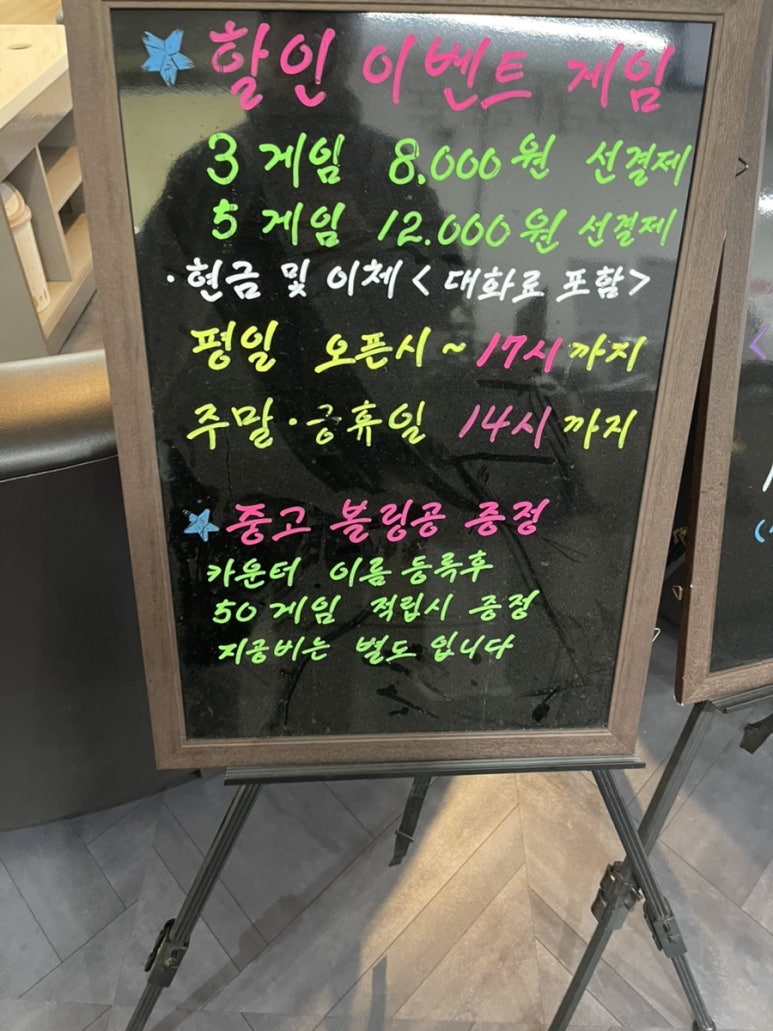 할인 이벤트 게임
3 게임 8.000원 선결제
5 게임 12.000원 선결제
· 현금 및 이체 < 대화료 포함>
평일 오픈시 ~ 17시까지
주말 · 공휴일 14시 까지
중고 볼링공 증정
카운터 이름 등록후
50 게임 적립시 증정
지공비는 별도 입니다